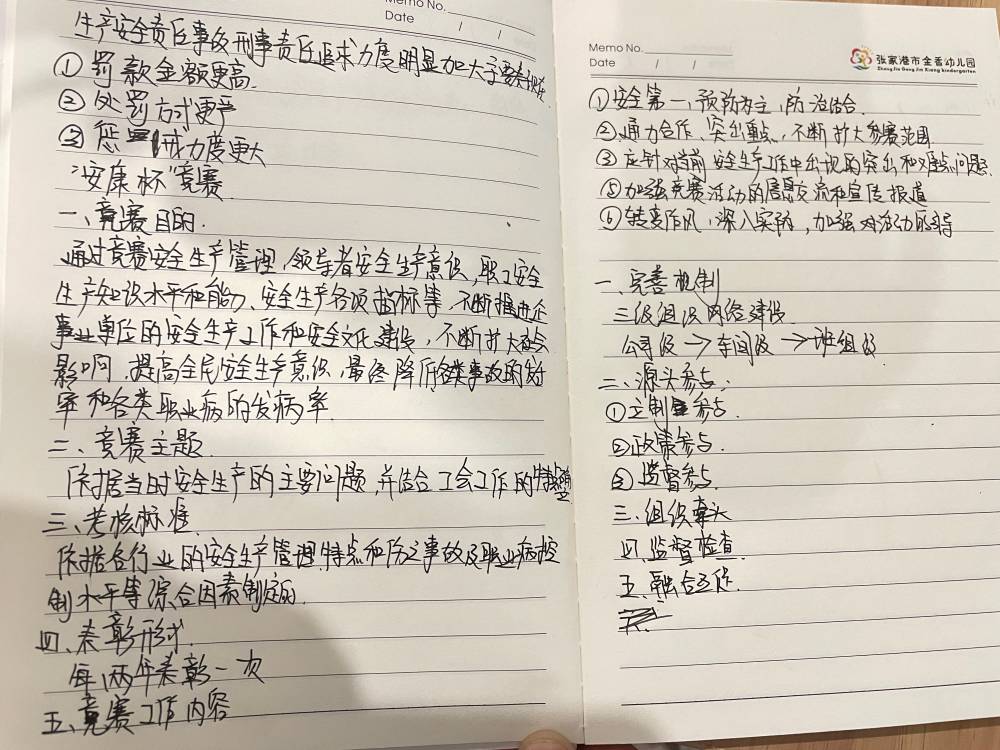 Memo No.
Date / /
生产安全责任事故刑事责任追求力度明显加大主要表现在
① 罚款金额更高.
② 处罚方式更严
③ 惩戒力度更大
"安康杯"竞赛
一、竞赛目的.
通过竞赛安全生产管理,领导者安全生产意识,职工安全
生产知识水平和能力、安全生产各项指标等,不断推进企
事业单位的安全生产工作和安全文化建设,不断扩大
影响,提高全民安全生产意识,最终降低各类事故的发
率和各类职业病的发病率.
二、竞赛主题
依据当时安全生产的主要问题,并结合工会工作的特点
三、考核标准
依据各行业的安全生产管理特点和伤亡事故及职业病控
制水平等综合因素制定的.
四、表彰形式.
每两年表彰一次
五、竞赛工作内容
Memo No.
Date / /
张家港市金香幼儿园
Zhang Jia Gang Jin Xiang kindergarten
①安全第一、预防为主,防治结合.
②通力合作、突出重点,不断扩大参赛范围
③应针对当前安全生产工作中出现的突出和难点问题.
⑤加强竞赛活动的信息交流和宣传报道
⑥转变作风,深入实际,加强对活动的指导
一、完善机制
三级组织网络建设
公司级→车间级→班组级
二、源头参与.
①立制参与.
②政策参与.
③监督参与.
三、组织牵头
四、监督检查.
五、融合工作